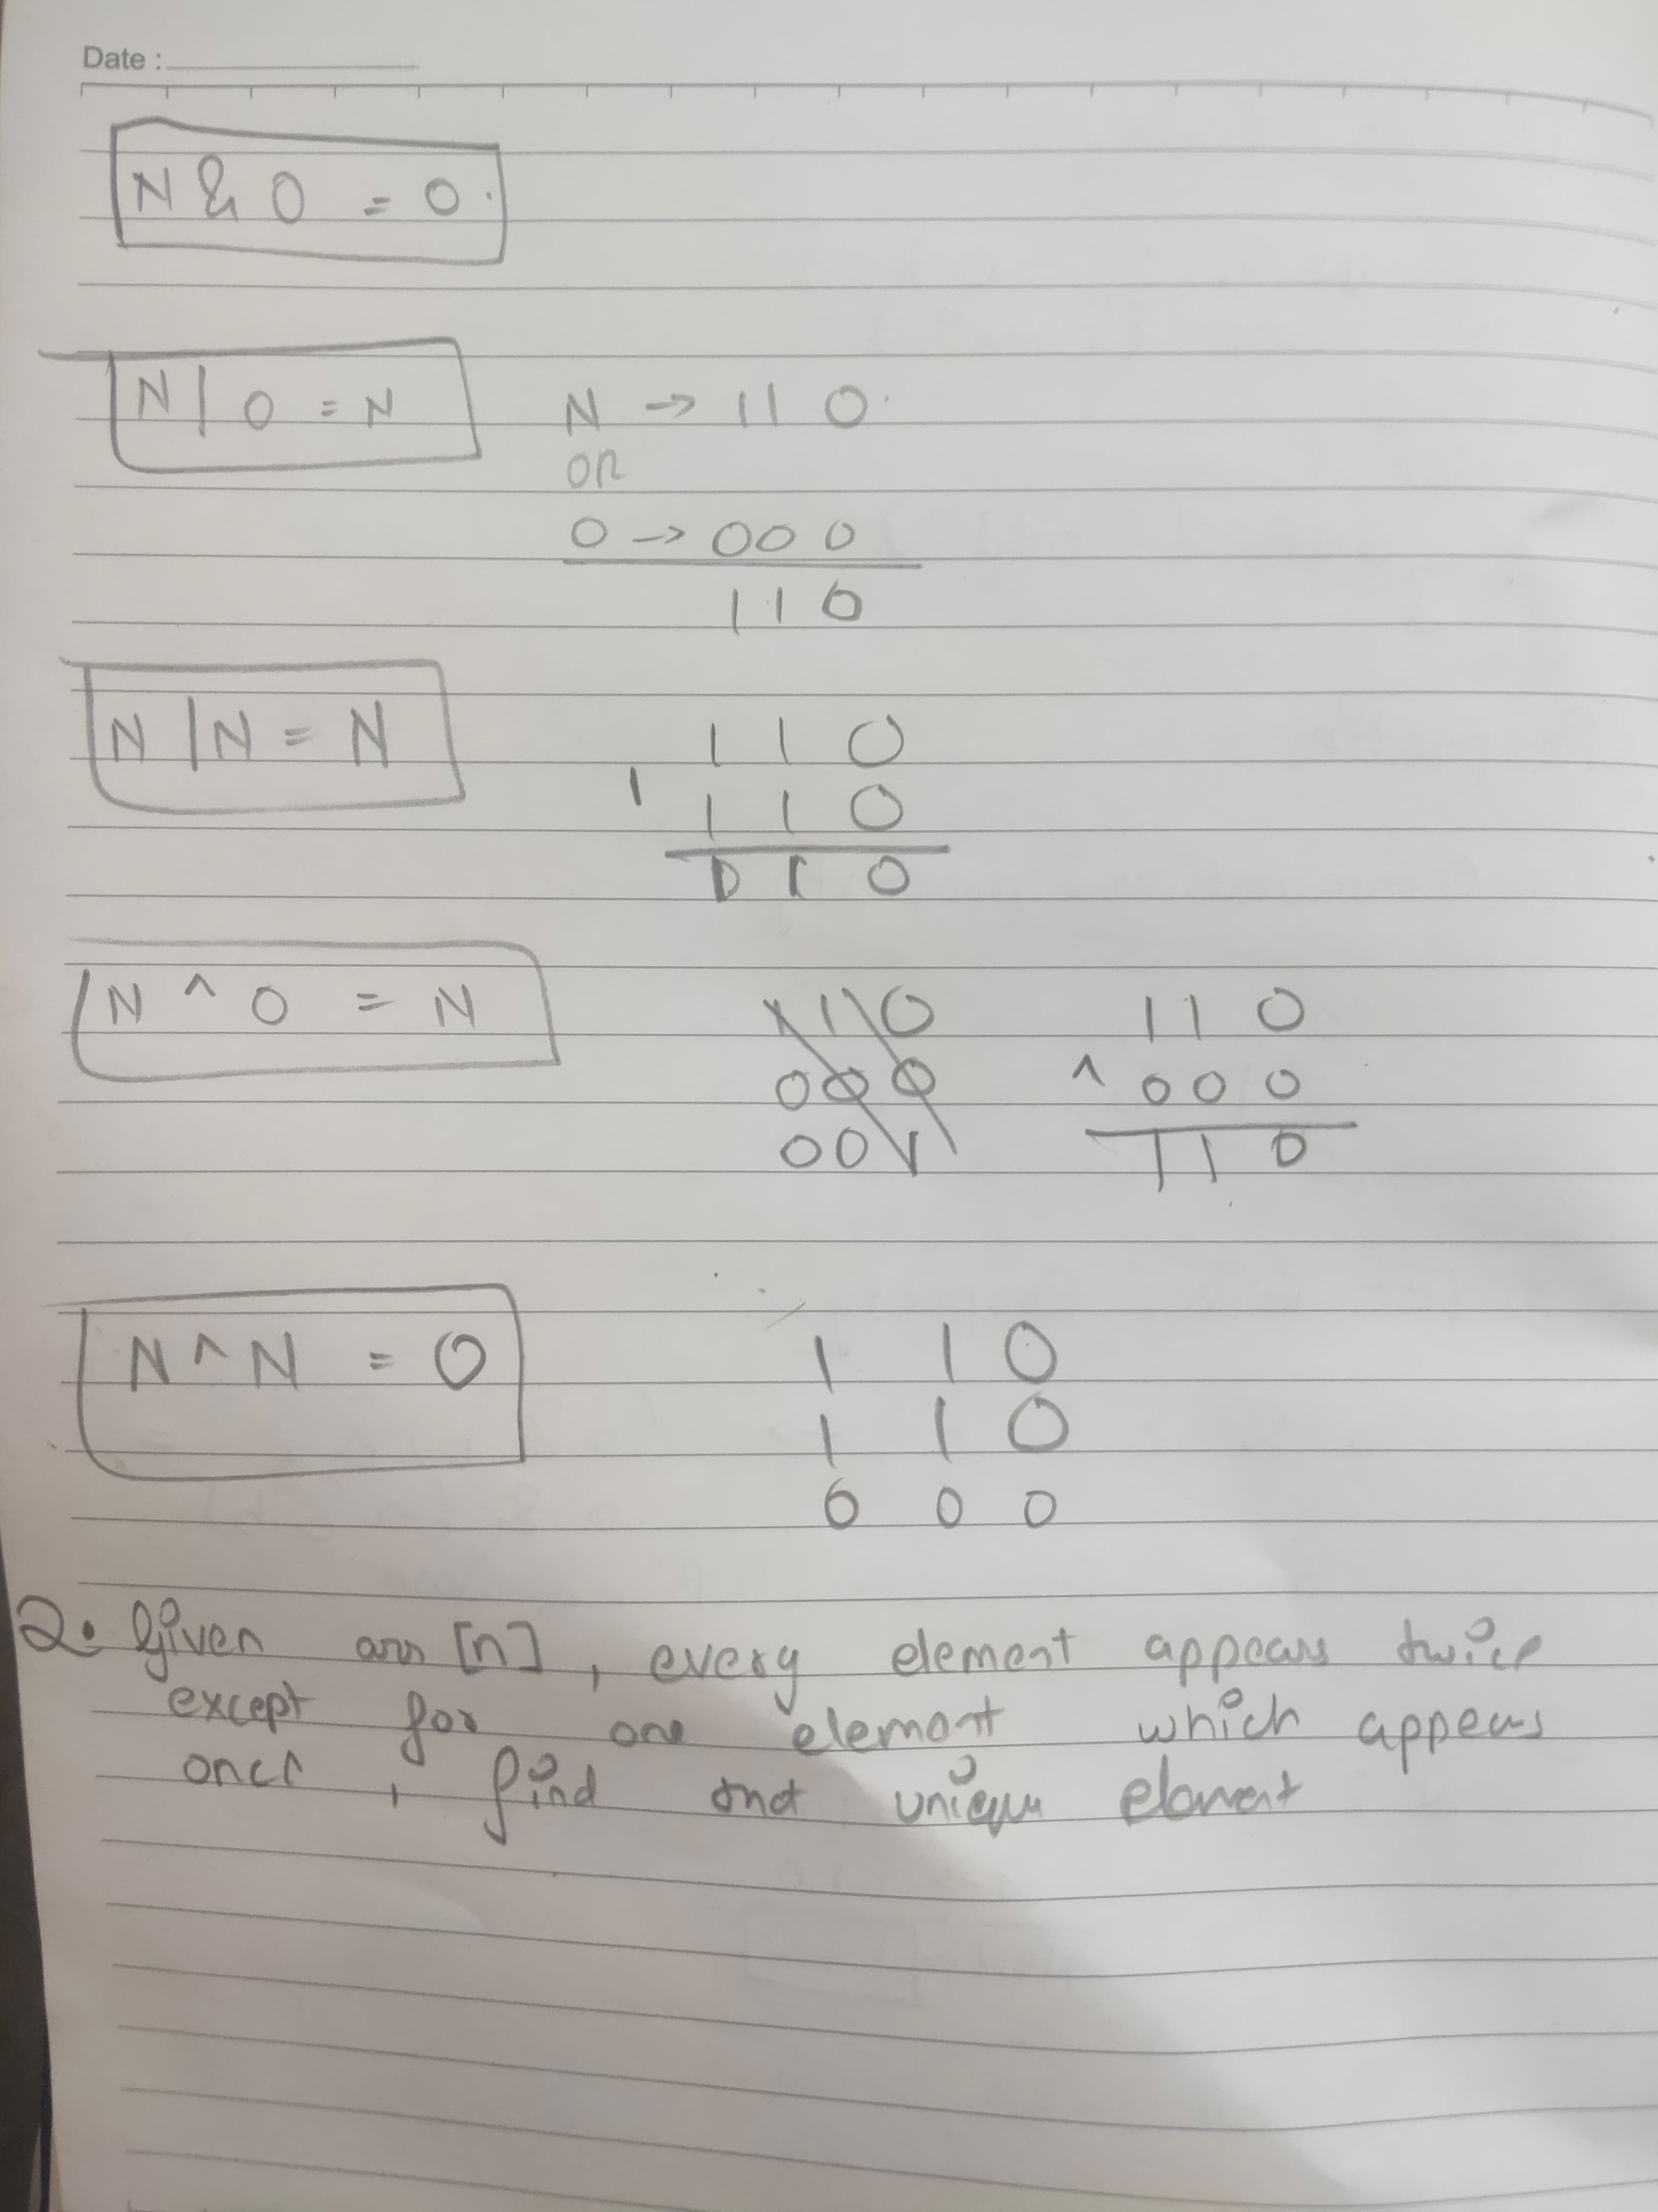 Date :
N & 0 = 0
N | 0 = N
N → 110
OR
0 → 000
110
N | N = N
110
| 110
110
N ^ 0 = N
110
000
001
110
^ 000
110
N ^ N = 0
110
110
000
Q. Given arr [n], every element appears twice
except for one element which appears
once, find that unique element